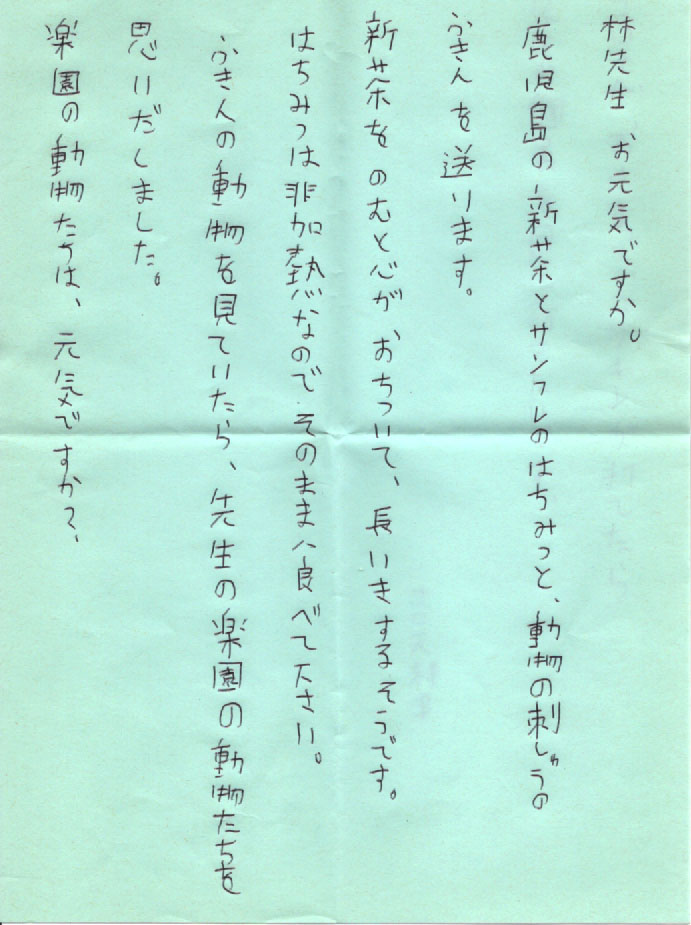 林先生　お元気ですか。
鹿児島の新茶とサンフレのはちみつと、動物の刺しゅうの
ふきんを送ります。
新茶をのむと心がおちついて、長いきするそうです。
はちみつは非加熱なので そのまま食べて下さい。
ふきんの動物を見ていたら、先生の楽園の動物たちを
思いだしました。
楽園の動物たちは、元気ですか?、